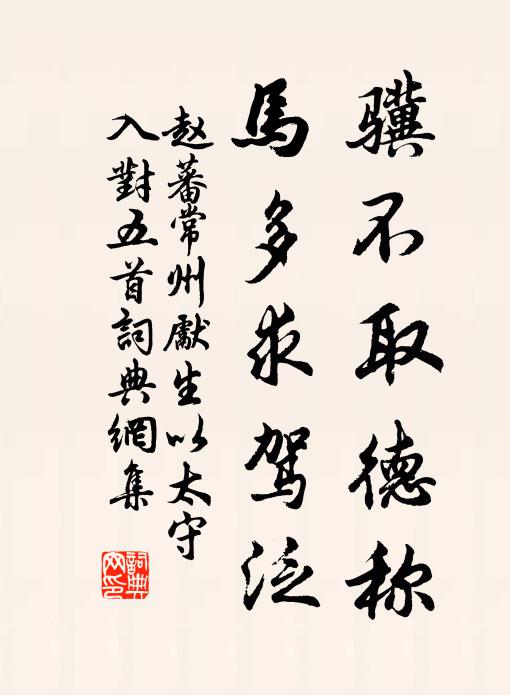 骥不取德称
馬多求駕泛
赵蕃常州獻生以太守
入對五首詞典網集
詞典
网印